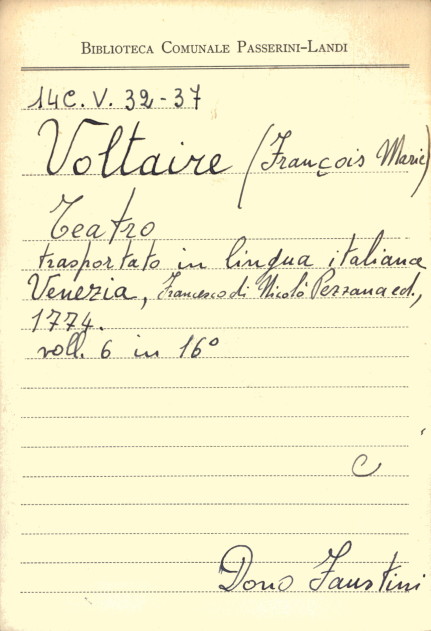 BIBLIOTECA COMUNALE PASSERINI-LANDI
14C. V. 32-37
Voltaire (François Marie)
Teatro
trasportato in lingua italiana
Venezia, Francesco di Nicolò Pezzana ed.,
1774.
voll. 6 in 16°
C
Dono Faustini